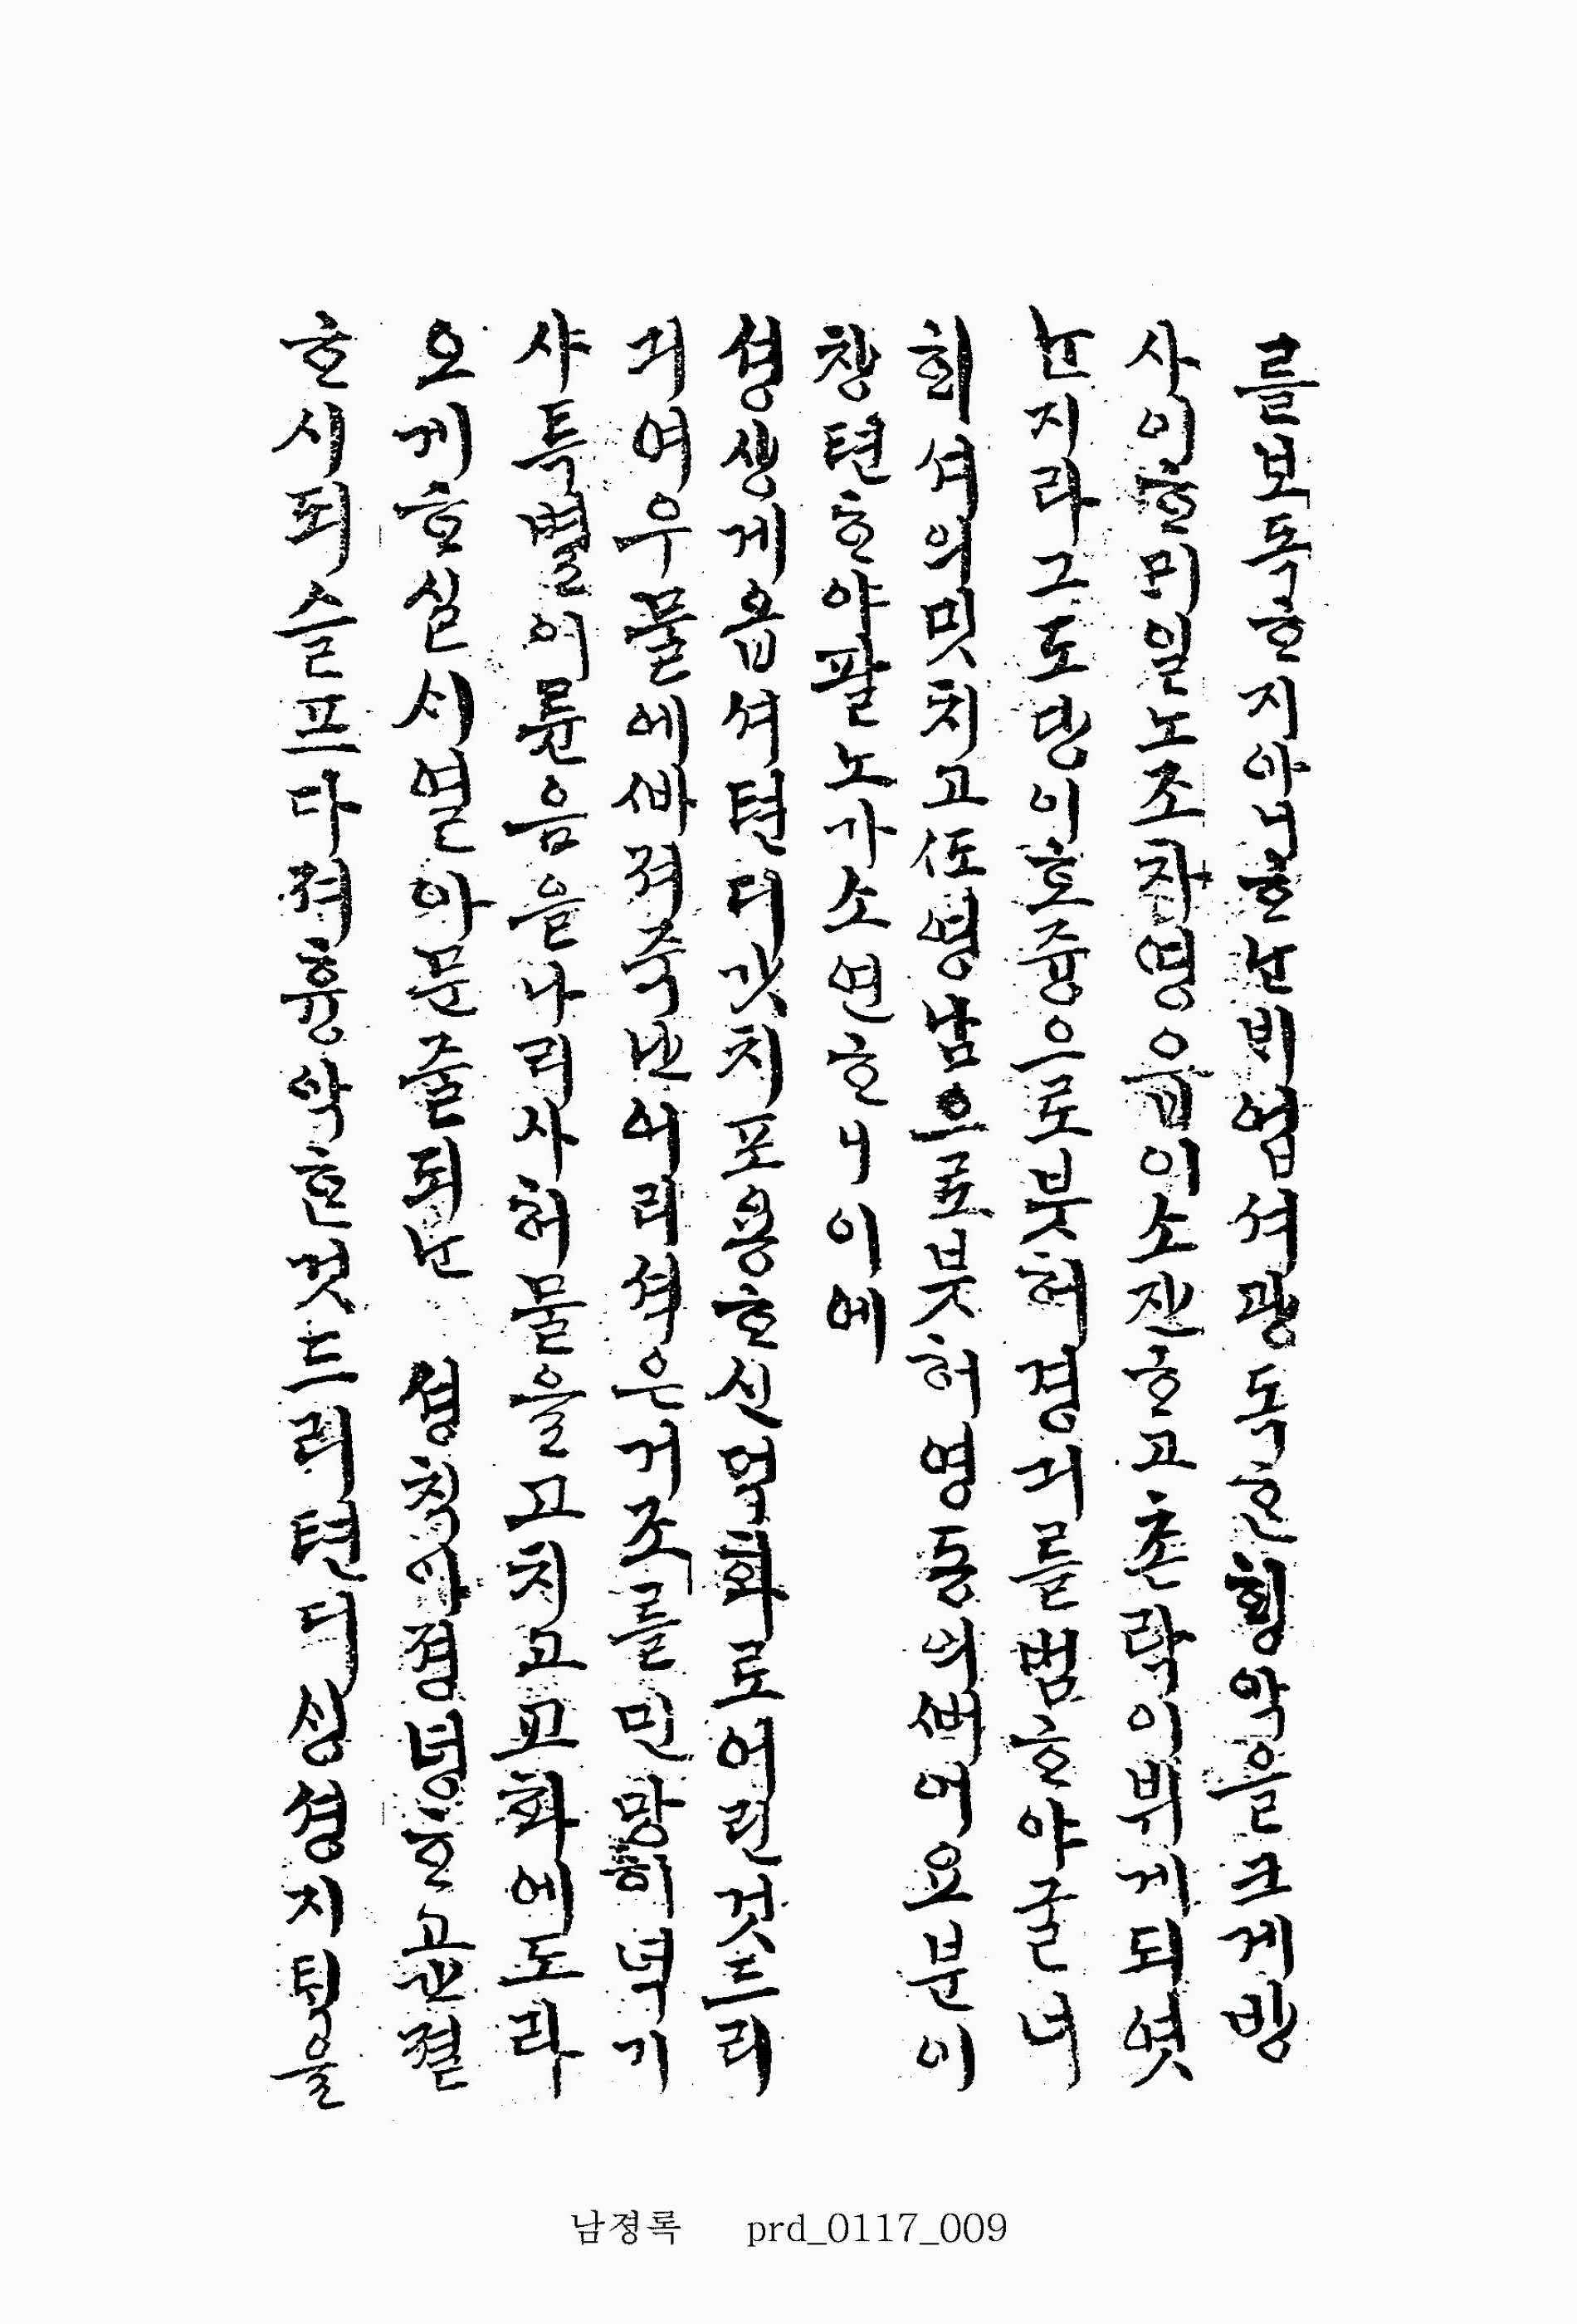 를보독ᄒᆞ지아니ᄒᆞ난비업셔광독ᄒᆞᆫ횡악을크게방
사이ᄒᆞᄆᆡ일노조차영읍이소잔ᄒᆞ고촌락이뷔게되엿
난지라그도당이호즁으로붓허경긔를범ᄒᆞ야굴녀
희셔의밋치고ᄯᅩ영남으로붓허영동의ᄲᅥ어요분이
창텬ᄒᆞ야팔노가소연ᄒᆞ니이에
셩샹게옵셔텬디갓치포용ᄒᆞ신덕화로어린것드리
긔여우물에ᄲᅡ져죽난어리셕은거조를민망히녁기
샤특별이륜음을나리사허물을고치고교화에도라
오게ᄒᆞ실ᄉᆡ열아문줄되난 셩칙이졍녕ᄒᆞ고간졀
ᄒᆞ시되슬프다져흉악ᄒᆞᆫ것드리텬디싱셩지덕을
남졍록 prd_0117_009